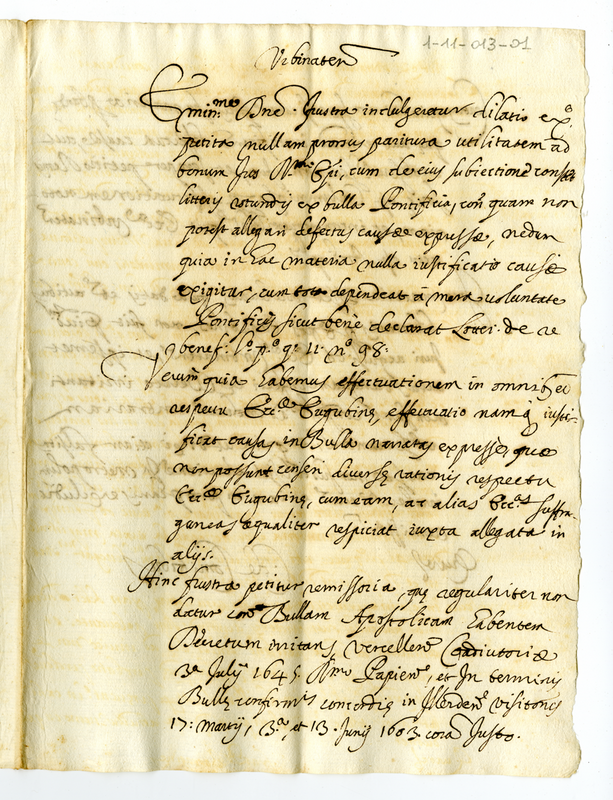 1-11-013-01
Urbinaten
Emin.mo Dne. Frustra indulgeretur dilatio ex.a
petita nullam prorsus paritura utilitatem ad
bonum Jus R.mi Epi, cum de eius subiectione const
litteris rotundis ex bulla Pontificia, con quam non
potest allegari defectus causæ expressæ, nedum
quia in hac materia nulla iustificatio causæ
exigitur, cum tota dependeat à mera voluntate
Pontificis sicut benè declarat Lotter. de re
benef. l.o p.o q. 11. n.o 98:
Verum quia habemus effectuationem in omnibus et
respectu Ecc.æ Eugubinę, effectuatio namq. iusti-
ficat causas in Bulla narratas expressè, quæ
non possunt censeri diversę rationis respectu
Ecc.æ Eugubinę, cum eam, ac alias Ecc.as suffra-
guneas æqualiter respiciat iuxta allegata in
alijs.
Hinc frustra petitur remissoria, quę regulariter non
datur con. Bullam Apostolicam habentem
Decretum irritans Vercellen. Coadiutoriæ
3.e Julij 1645. R.mo Papien., et In terminis
Bullę confirm.s concordię in Ilerden. visitonis
17: Martij, 3.a, et 13. Junij 1663. corā Justo.